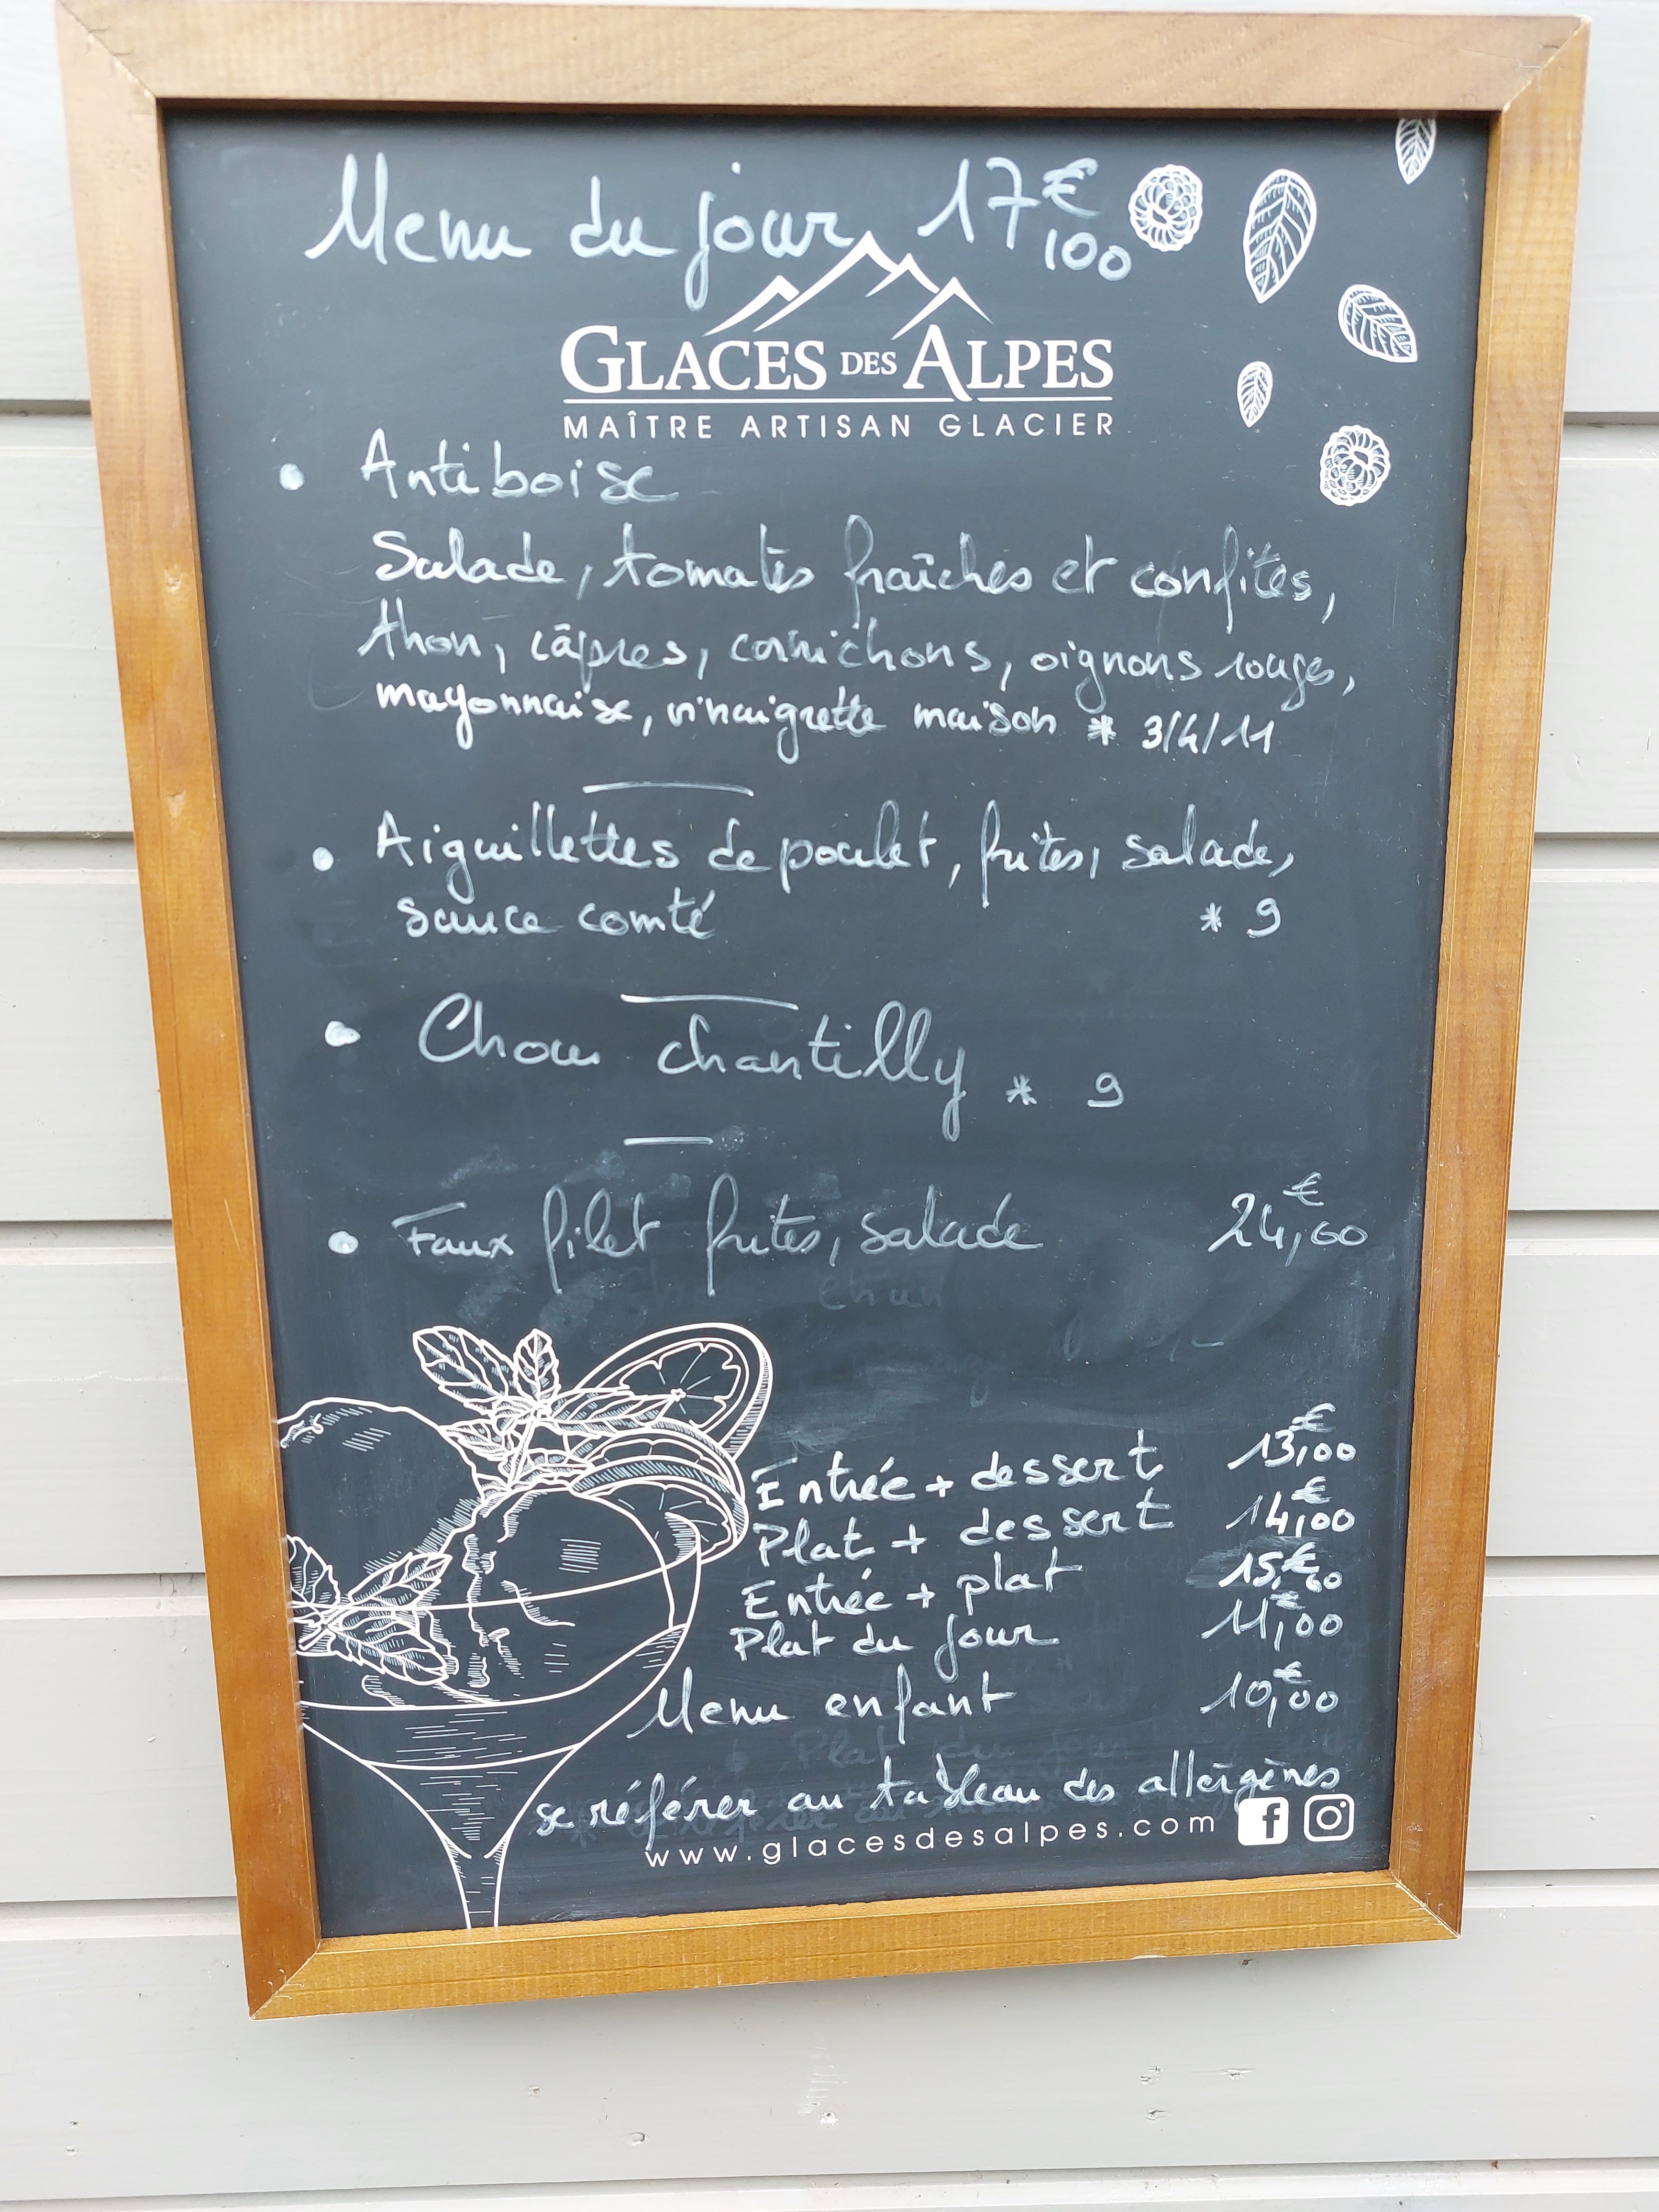 Menu du jour 17€,00
GLACES DES ALPES
MAÎTRE ARTISAN GLACIER
• Antiboise
Salade, tomates fraîches et confites,
thon, câpres, cornichons, oignons rouges,
mayonnaise, vinaigrette maison * 3/4/11
• Aiguillettes de poulet, frites, salade,
sauce comté * 9
• Chou chantilly * 9
• Faux filet frites, salade 24,€00
Entrée + dessert 13,€00
Plat + dessert 14,€00
Entrée + plat 15,€00
Plat du jour 11,€00
Menu enfant 10,€00
se référer au tableau des allergènes
www.glacesdesalpes.com